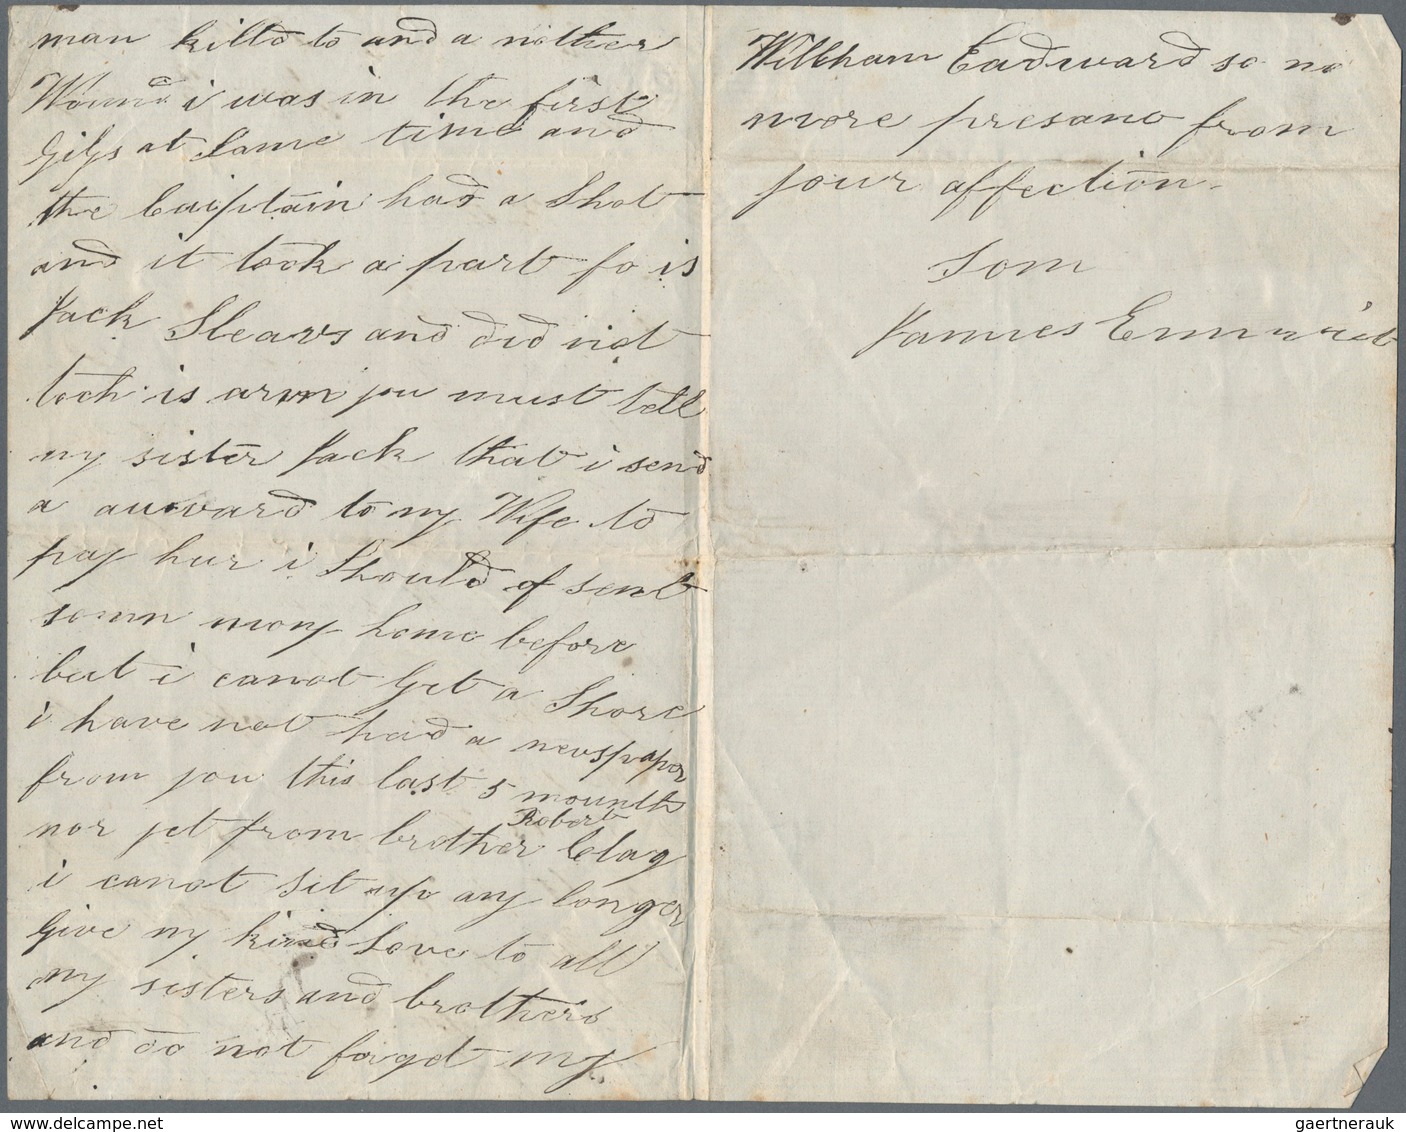 man killd to and a nother
Wound i was in the first
Gigs at Same time and
the Caiptain had a Shot
and it took a part fo is
Jack Sleavs and did not
toch is arm you must tell
my sister Jack that i send
a auward to my Wife to
pay hur i Should of sent
somn mony home before
but i canot Get a Shore
i have not had a newspaper
from you this last 5 mounths
Robert
nor yet from brother Clag
i canot sit up any longer
Give my kind Love to all
my sisters and brothers
and do not forget my
Willham Eadward so no
more presano from
your affection
Som
James
delcampe.net
gaertnerauk